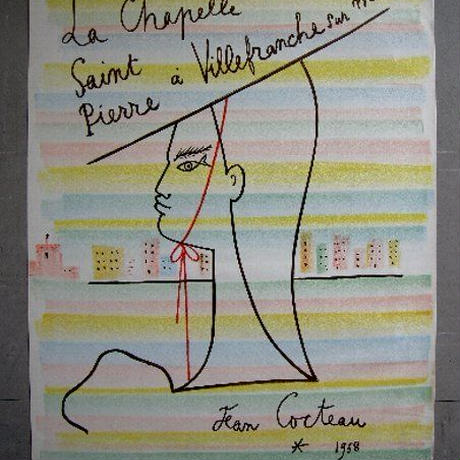 La Chapelle
Saint
Pierre à Villefranche sur Mer
Jean Cocteau
1958